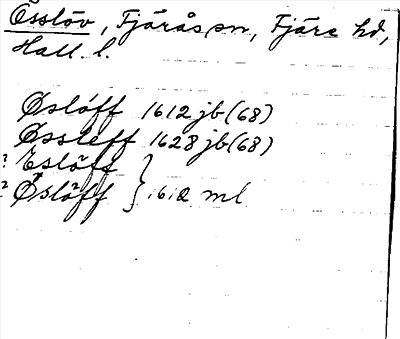 Össlöv, Fjärås sn, Fjäre hd,
Hall. l.
Øslöff 1612 jb (68)
Øssleff 1628 jb (68)
? Eslöff
? Øslöff } 1612 ml